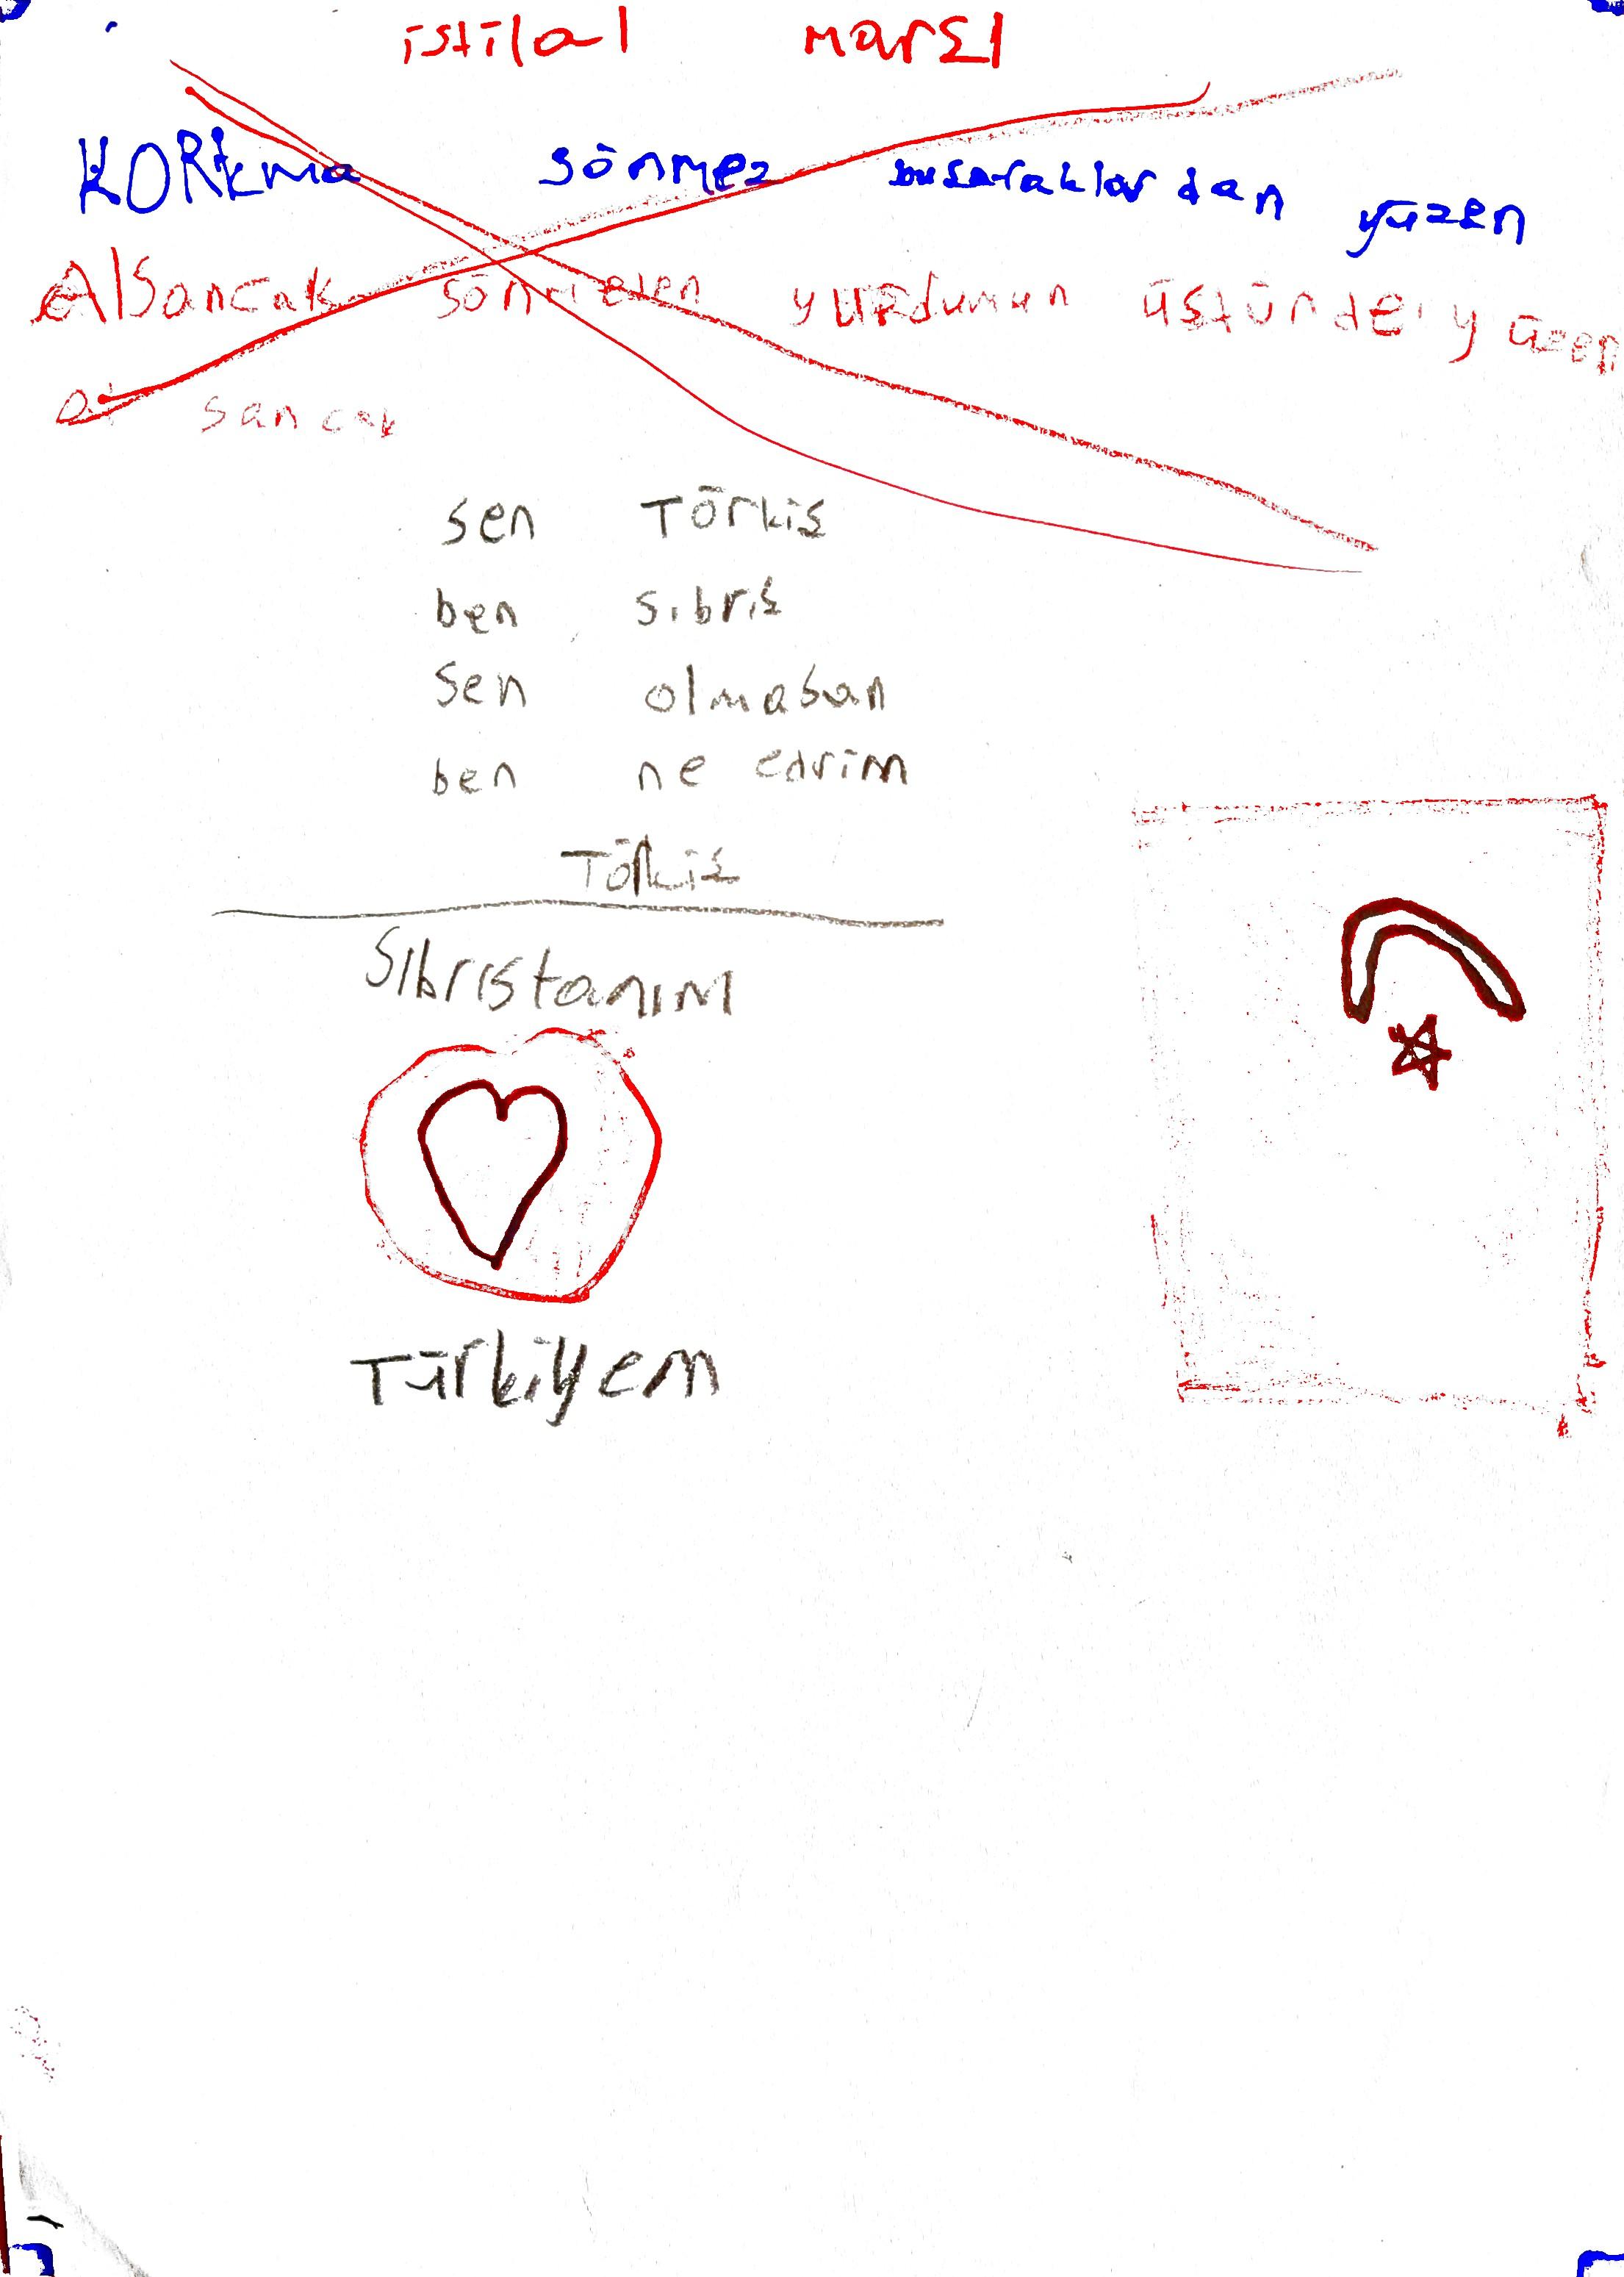 istilal marşı
KORkma sönmez buşafaklardan yüzen
Alsancak sönmeden yurdumun üstünde yüzen
al sancak
sen Törkiş
ben sıbriş
sen olmasan
ben ne edrim
Törkiş
Sıbrıstanım
Türkiyem